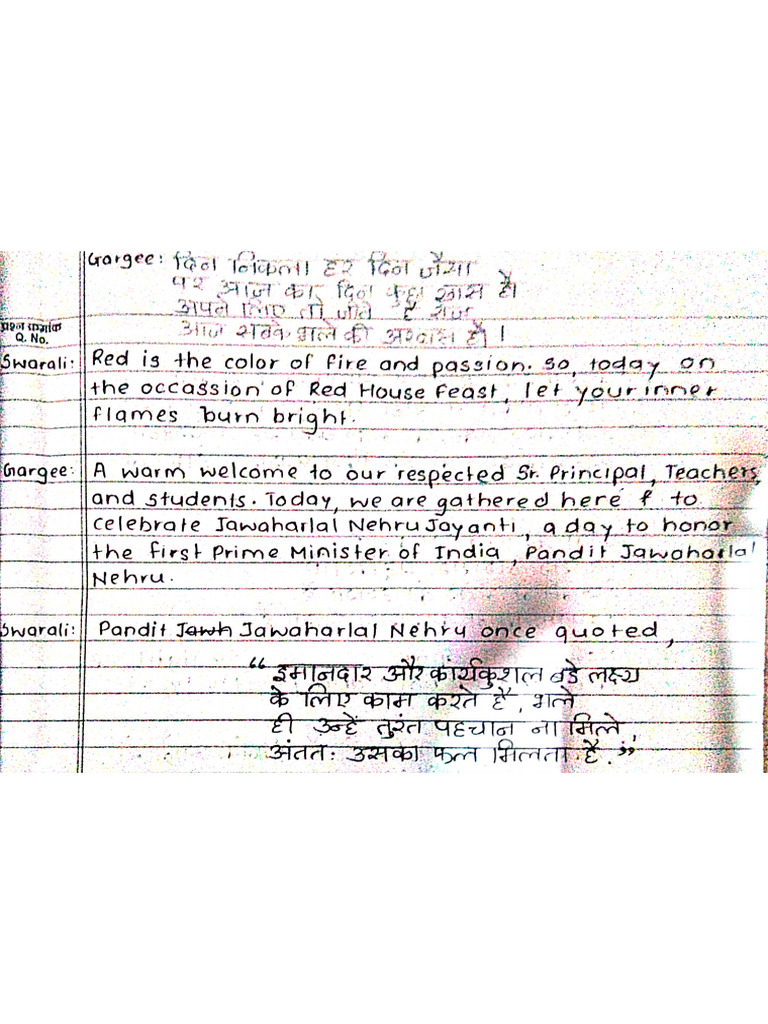 Gargee: दिन निकला हर दिन जैसा
पर आज का दिन कुछ खास है।
अपने लिए तो जीते है रोज
आज सबके भले की अरदास है।
प्रश्न क्रमांक
Q. No.
Swarali: Red is the color of fire and passion. So, today on
the occassion of Red House Feast, let your inner
flames burn bright.
Gargee: A warm welcome to our respected Sr. Principal, Teachers,
and students. Today, we are gathered here to
celebrate Jawaharlal Nehru Jayanti, a day to honor
the first Prime Minister of India, Pandit Jawaharlal
Nehru.
Swarali: Pandit Jawh Jawaharlal Nehru once quoted,
“ इमानदार और कार्यकुशल बडे लक्ष्य
के लिए काम करते है, भले
ही उन्हें तुरंत पहचान ना मिले,
अंततः उसका फल मिलता है.”